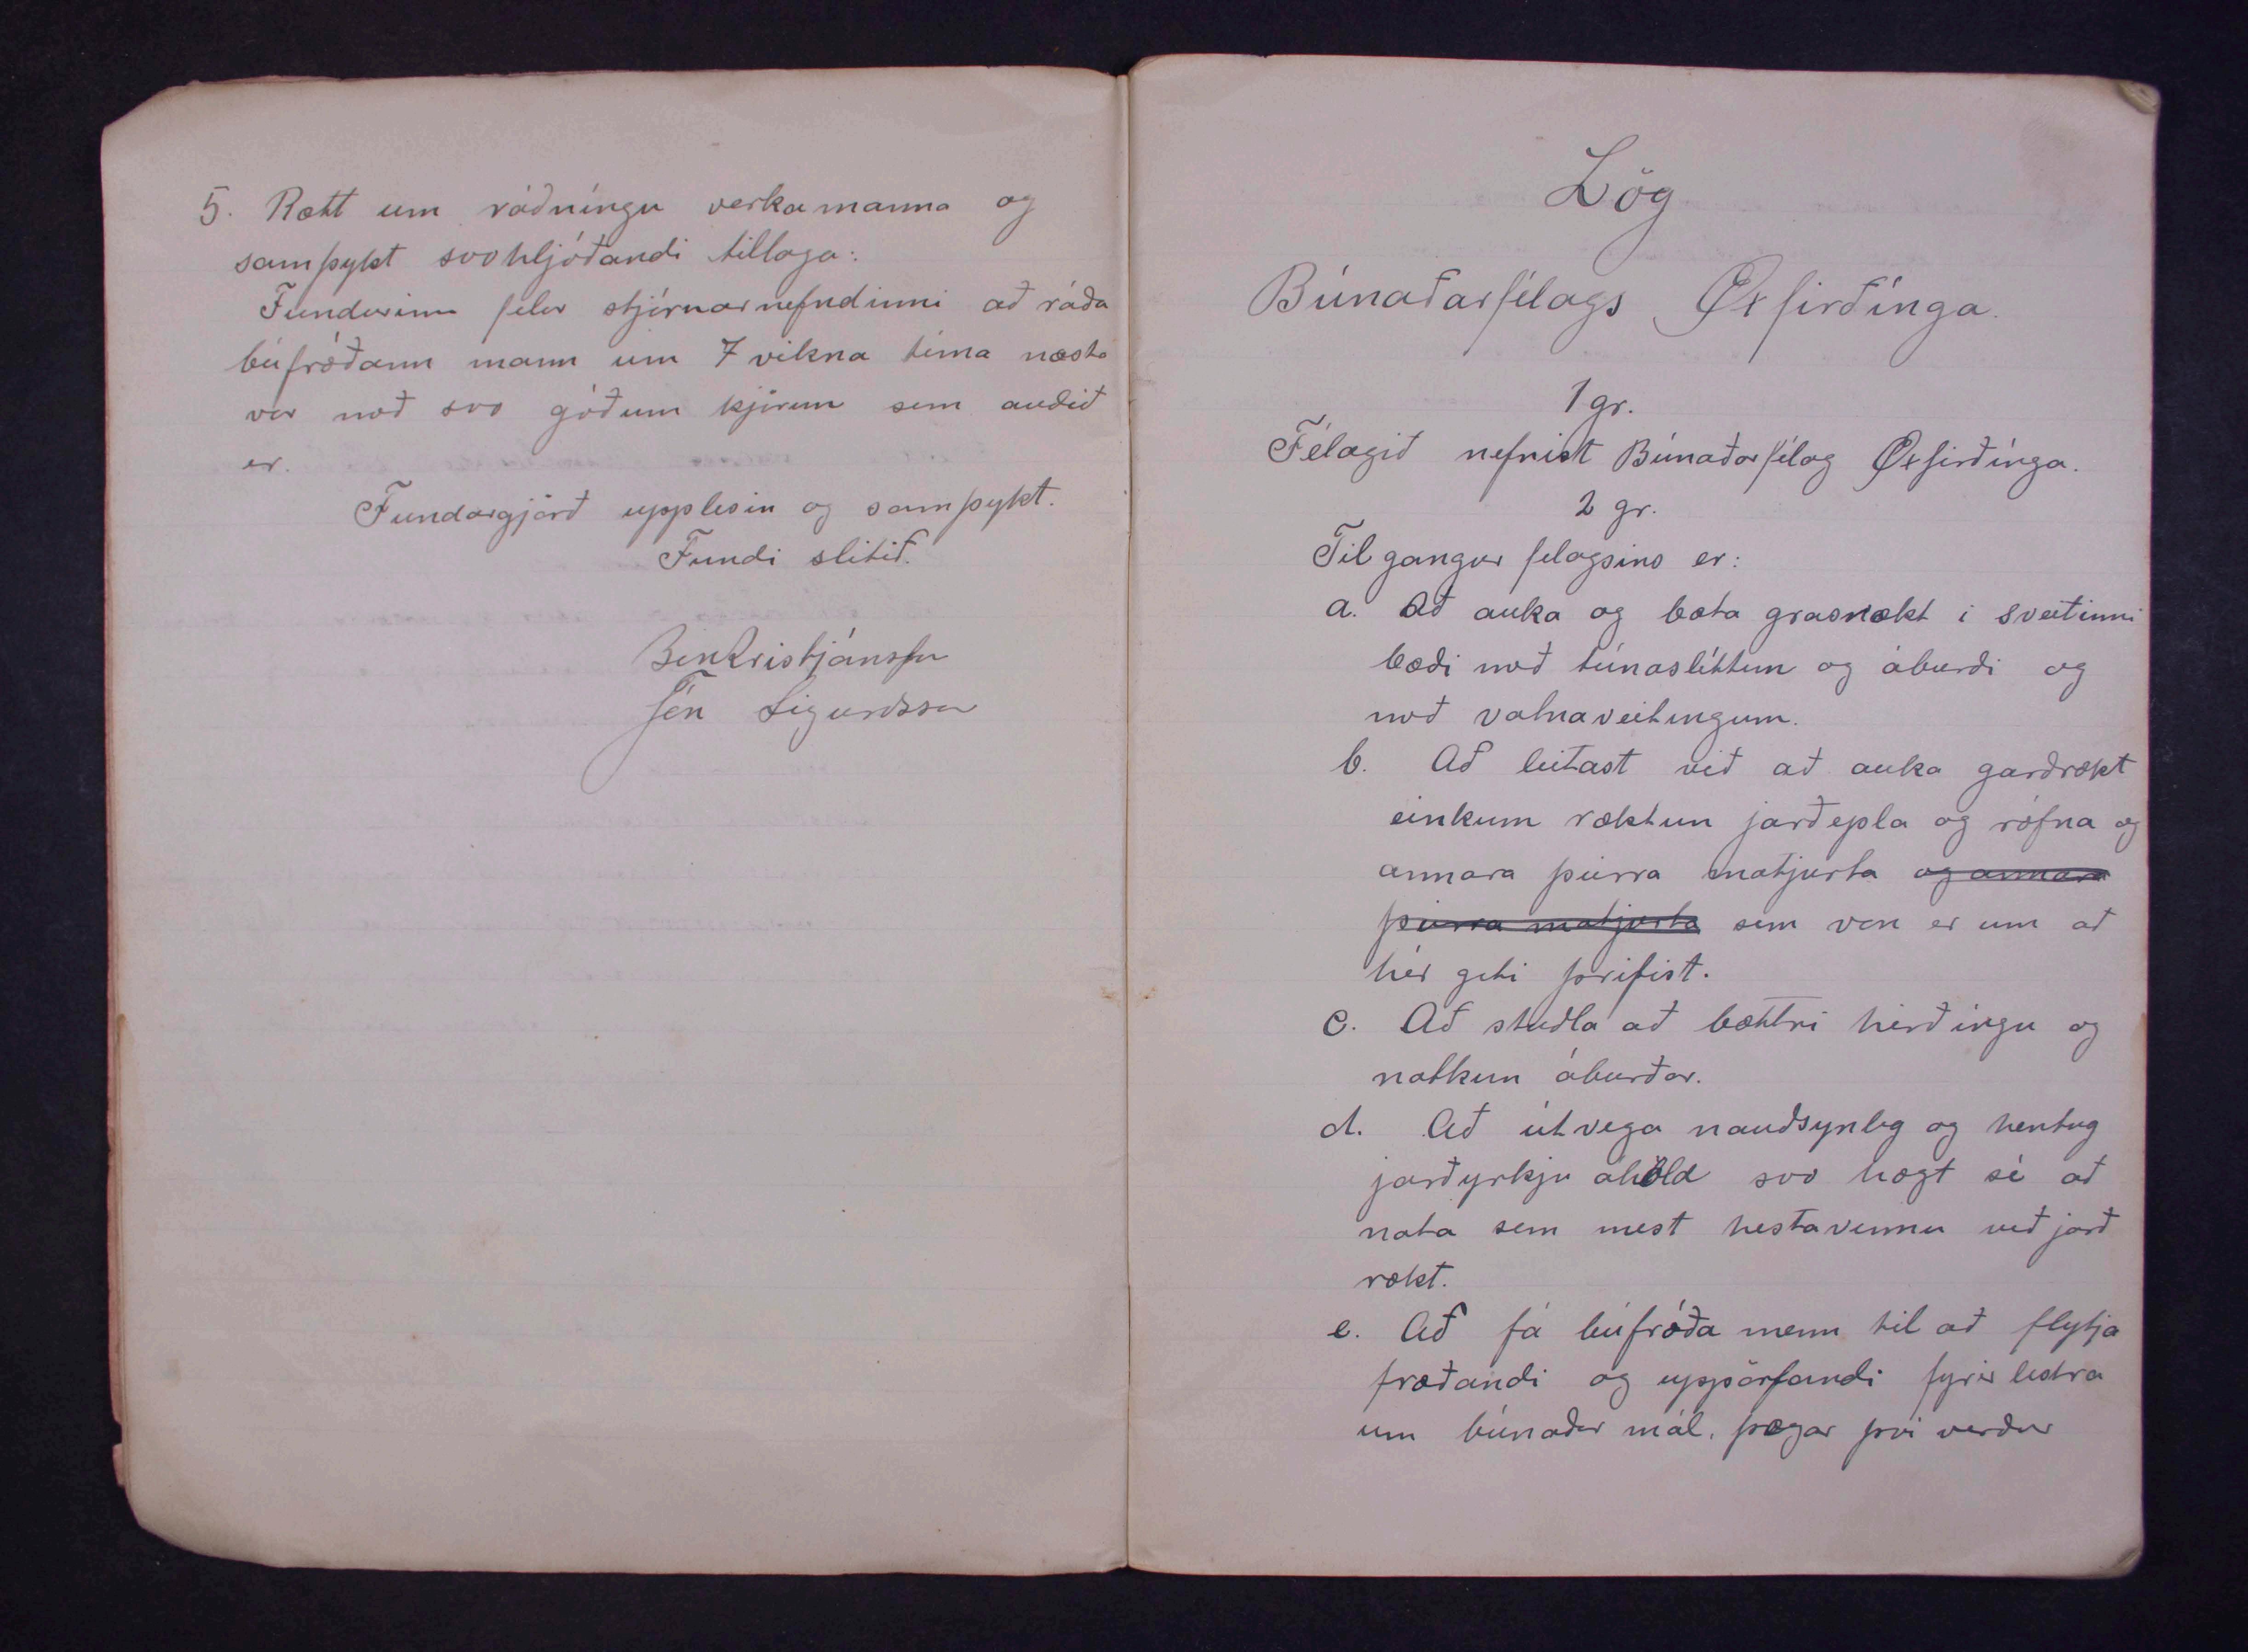 5. Rætt um ráðníngu verkamanna og
samþykt svohljóðandi tillaga:
Fundurinn felur stjórnarnefndinni að ráða
búfróðann mann um 7 vikna tíma næsta
vor með svo góðum kjörum sem auðið
er.
Fundargjörð upplesin og samþykt.
Fundi slitið.
Ben Kristjánsson
Jón Sigurðsson
Lög
Búnaðarfélags Øxfirðínga.
1 gr.
Félagið nefnist Búnaðarfélag Øxfirðínga.
2 gr.
Tilgangur felagsins er:
a. Að auka og bæta grasrækt i sveitinni
bæði með túnasléttum og áburði og
með vatnaveitingum.
b. Að leitast við að auka garðrækt
einkum ræktun jarðepla og rófna og
annara þurra matjurta og annara
þurra matjurta sem von er um að
hér geti þrifist.
c. Að stuðla að bættri hirðingu og
notkun áburðar.
d. Að útvega nauðsynleg og hentug
jarðyrkju áhöld svo hægt sé að
nota sem mest hestavinnu við jarð
rækt.
e. Að fá búfróða menn til að flytja
fræðandi og uppörfandi fyrir lestra
um búnaðar mál, þegar því verður